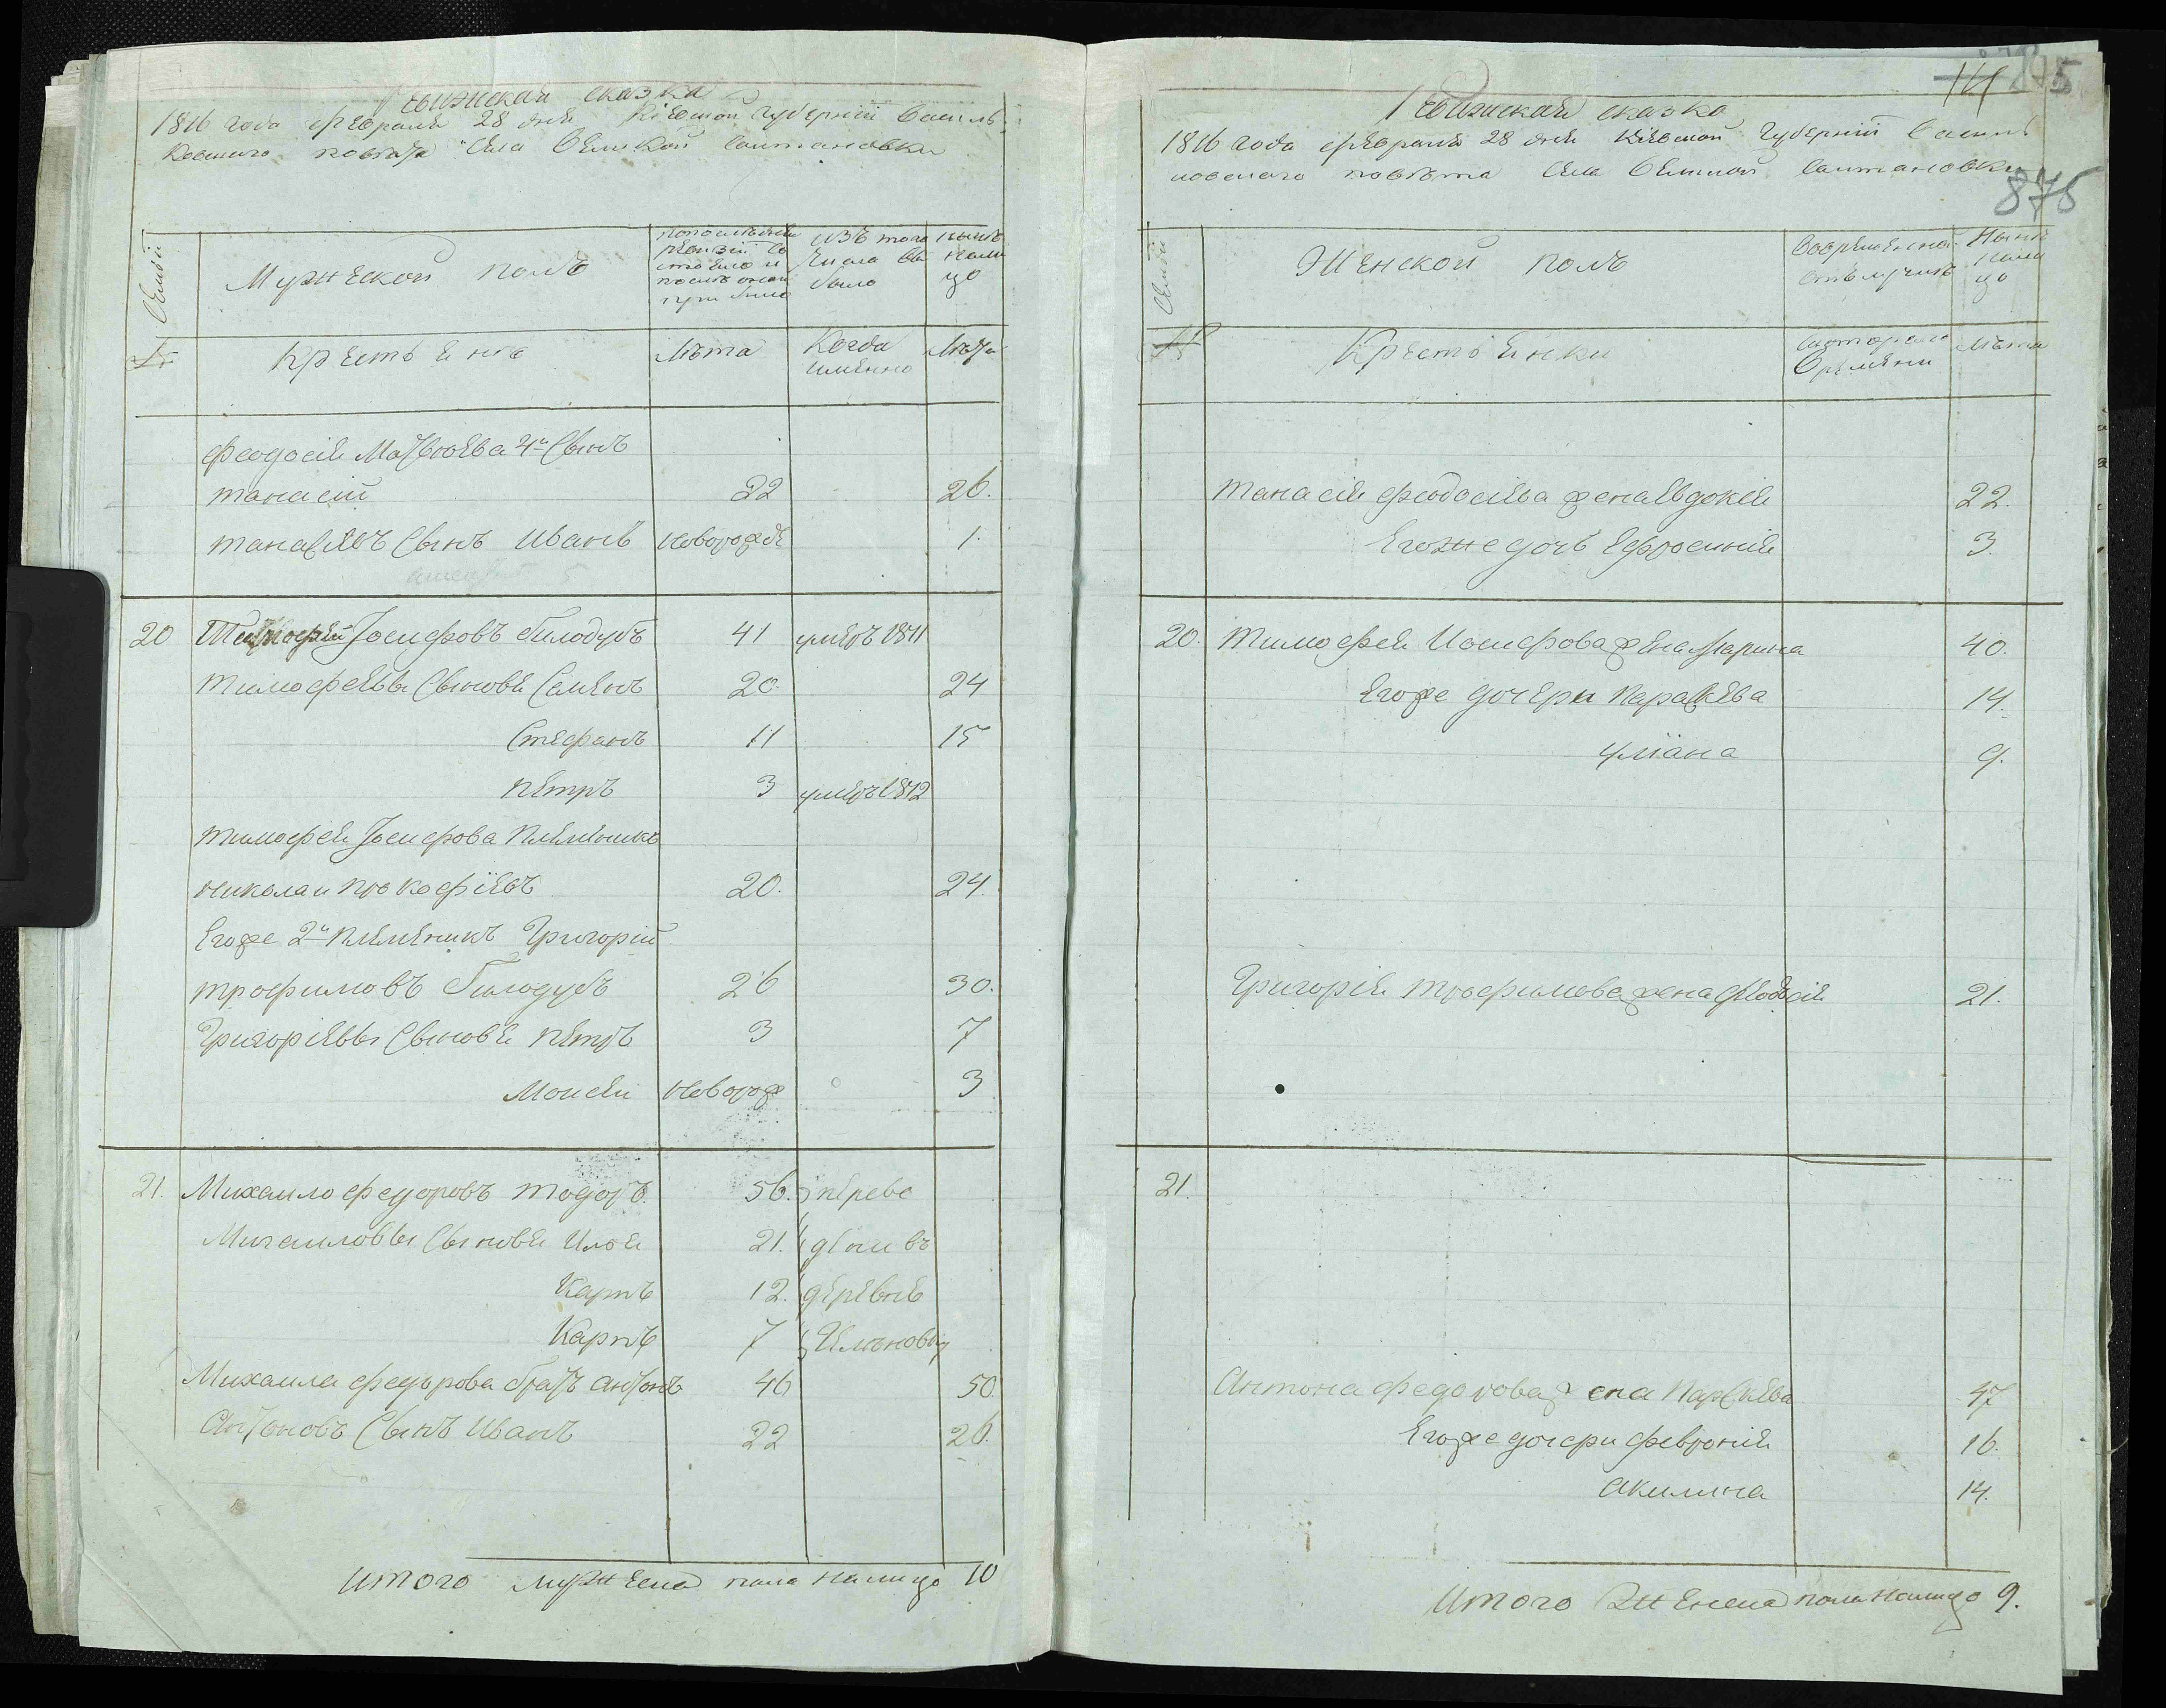 Ревижская сказка
1816 года февраля 28 дня Кіевской губерніи Василь
ковского повѣта Села Великой Салтановки
Семьи
Мужеской полъ
по последней ревизіи со стояло и после оной прибыло
изъ того числа вы было
Нынѣ на лицо
№
Крестьяне
Лѣта
Когда именно
Лѣта
Феодосія Матвіева 4й Сынъ
танасій 22 26.
танасіевъ Сынъ Иванъ новорожде 1.
20 Тимофей Іосифовъ Билодубъ 41 умеръ 1811
тимофеевы Сыновя Семенъ 20. 24
Стефанъ 11 15
петръ 3 умеръ 1812
тимофея Іосифова племѣникъ
николаи прокофіевъ 20. 24.
Егоже 2й племеникъ Григорій
трофимовъ Билодубъ 26 30.
Григоріевы Сыновя петръ 3 7
Моисеи новорож 3
21. Михаило федоровъ тодоръ. 56. переве
Михаиловы Сыновя Илья 21. дени въ
Карпъ 12. деревнѣ
Карпъ 7
Михаила федорова братъ антонъ 46 50
Антоновъ Сынъ Иванъ 22 26.
Итого мужеска пола налицо 10
875
Ревижская сказка
1816 года февраля 28 дня Кіевской Губерніи Василь
ковского повѣта Села Великой Салтановки
876
Семьи
Женской полъ
Во временной отлучкѣ
Нынѣ на лицо
№
Крестьянки
Съ которого времени
Лѣта
танасія феодосіева жена Евдокія 22.
Егоже дочь Ефросинія 3.
20. тимофея Иосифова жена Марина 40.
Егоже дочери Параскева 14.
уліана 9.
Григорія трофимова жена феодосія 21.
21.
Антона федорова жена Параскева 47
Егоже дочери февронія 16.
Акилина 14.
Итого Женска пола налицо 9.